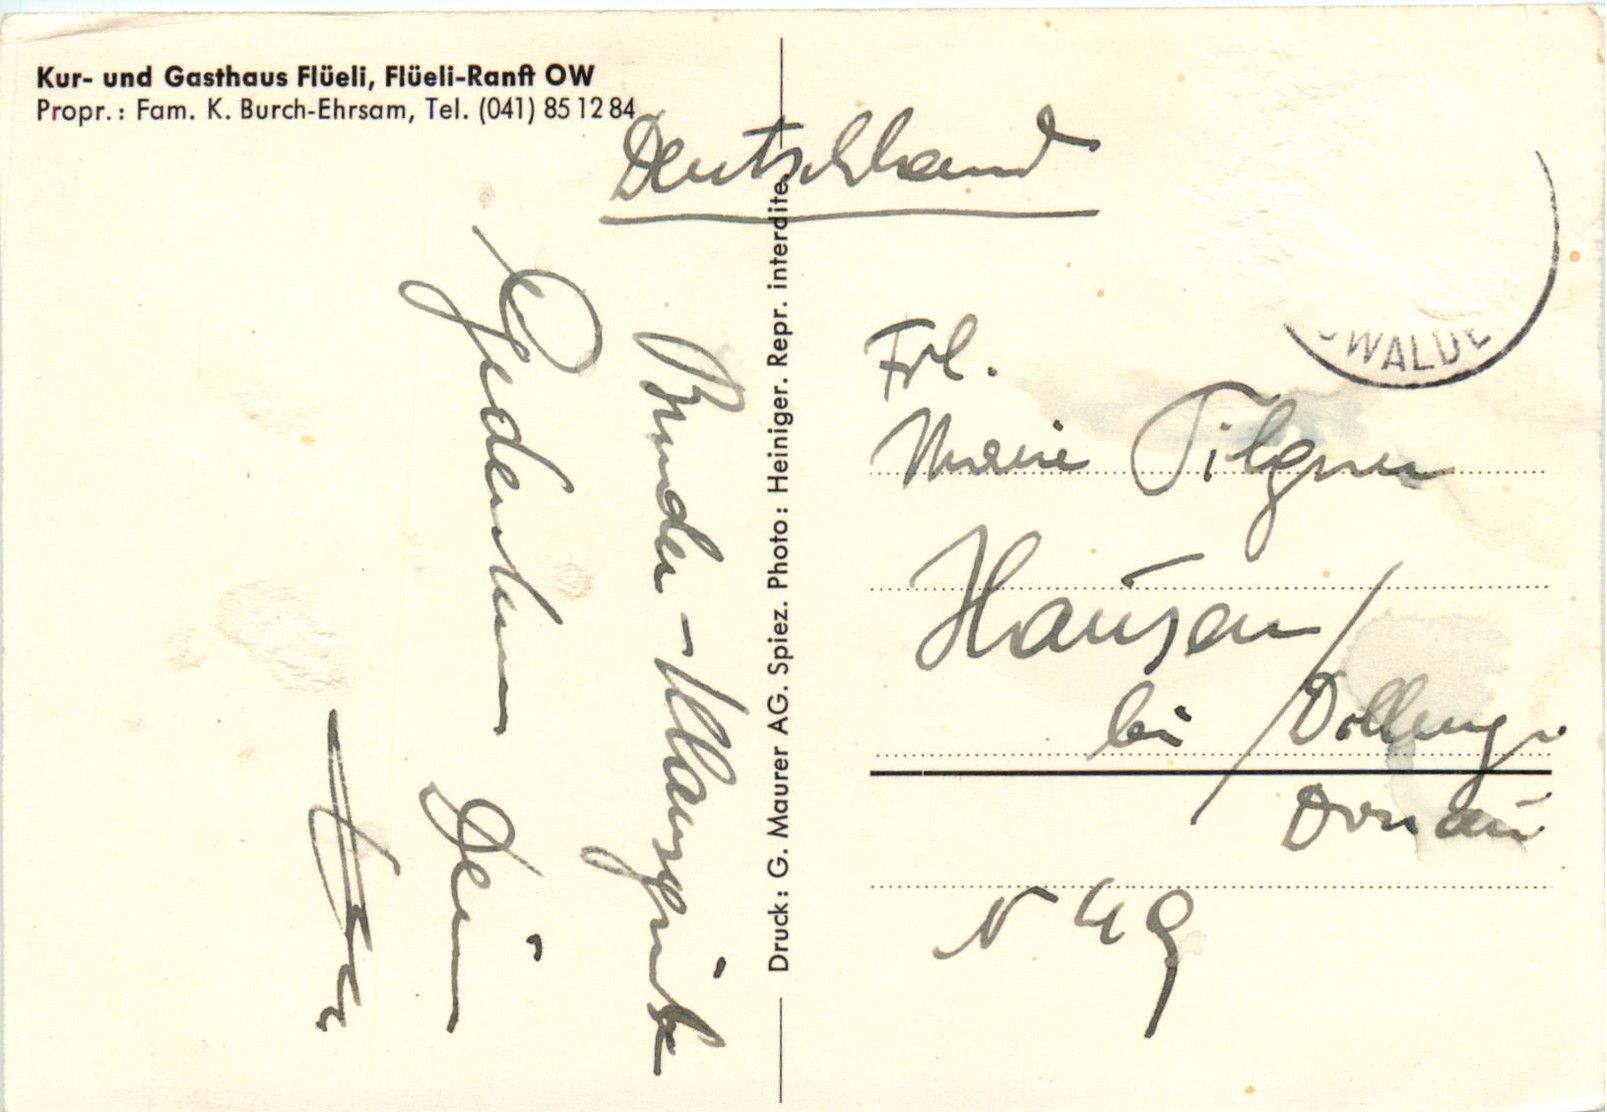 Kur- und Gasthaus Flüeli, Flüeli-Ranft OW
Propr.: Fam. K. Burch-Ehrsam, Tel. (041) 85 12 84
Deutschland
Bruder-Klausgrüße
Gedenken
Dein
Druck: G. Maurer AG. Spiez. Photo: Heiniger. Repr. interdite.
WALDE
Frl.
Marie Tilgner
Hausen/
bei
Donau
N 49